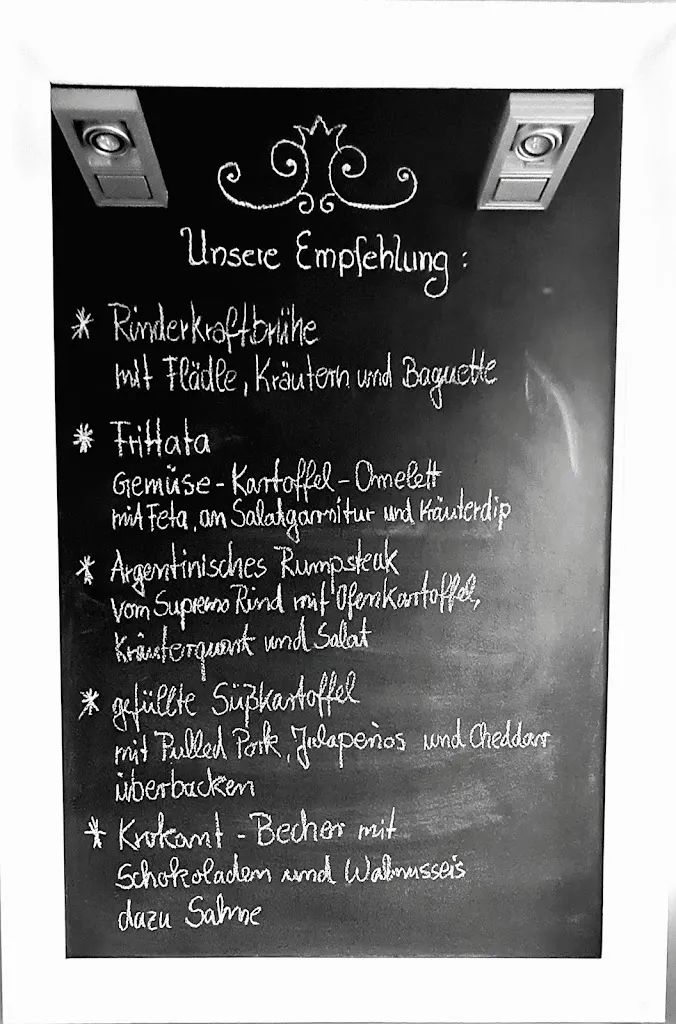 Unsere Empfehlung:
* Rinderkraftbrühe
mit Flädle, Kräutern und Baguette
* Frittata
Gemüse-Kartoffel-Omelett
mit Feta, an Salatgarnitur und Kräuterdip
* Argentinisches Rumpsteak
vom Supremo Rind mit Ofenkartoffel,
Kräuterquark und Salat
* gefüllte Süßkartoffel
mit Pulled Pork, Jalapeños und Cheddar
überbacken
* Krokant-Becher mit
Schokoladen und Walnusseis
dazu Sahne